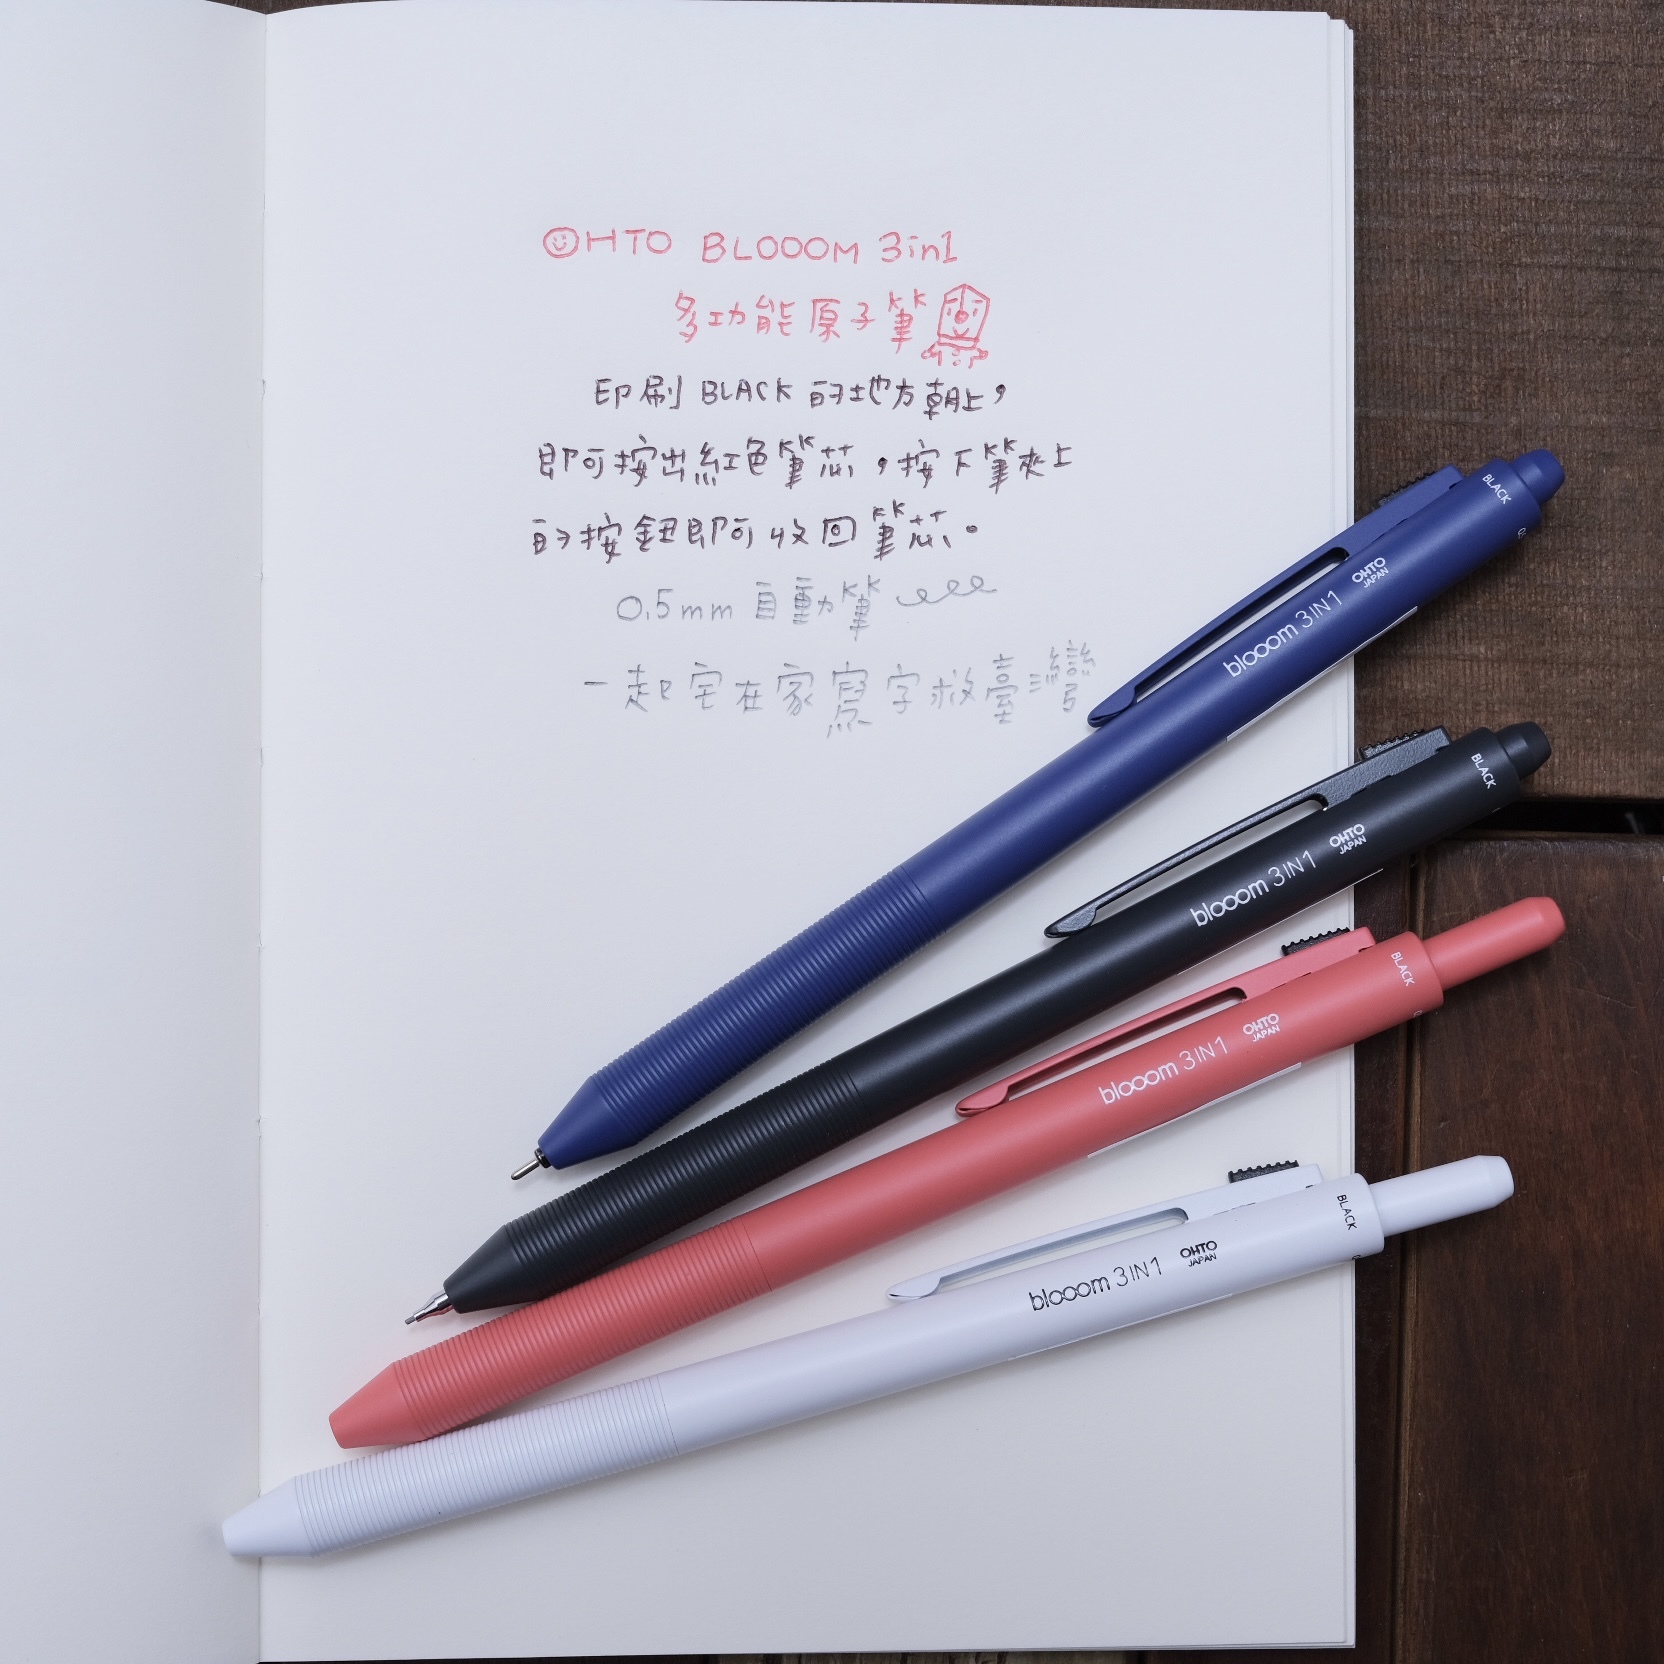 OHTO BLOOOM 3in1
多功能原子筆
印刷 BLACK 的地方朝上，
即可按出紅色筆芯，按下筆夾上
的按鈕即可收回筆芯。
0.5mm 自動筆
一起宅在家寫字救臺灣
BLACK
OHTO
JAPAN
blooom 3IN1
BLACK
OHTO
JAPAN
blooom 3IN1
BLACK
OHTO
JAPAN
blooom 3IN1
BLACK
OHTO
JAPAN
blooom 3IN1